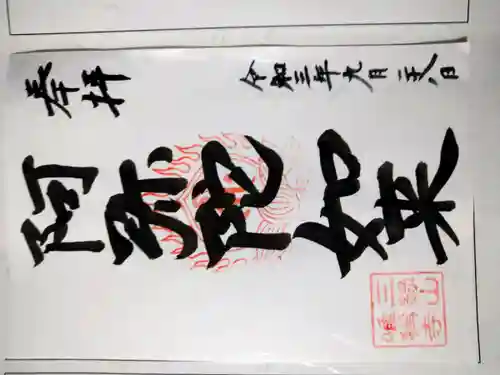 奉拝 令和三年九月二十八日
阿弥陀如来